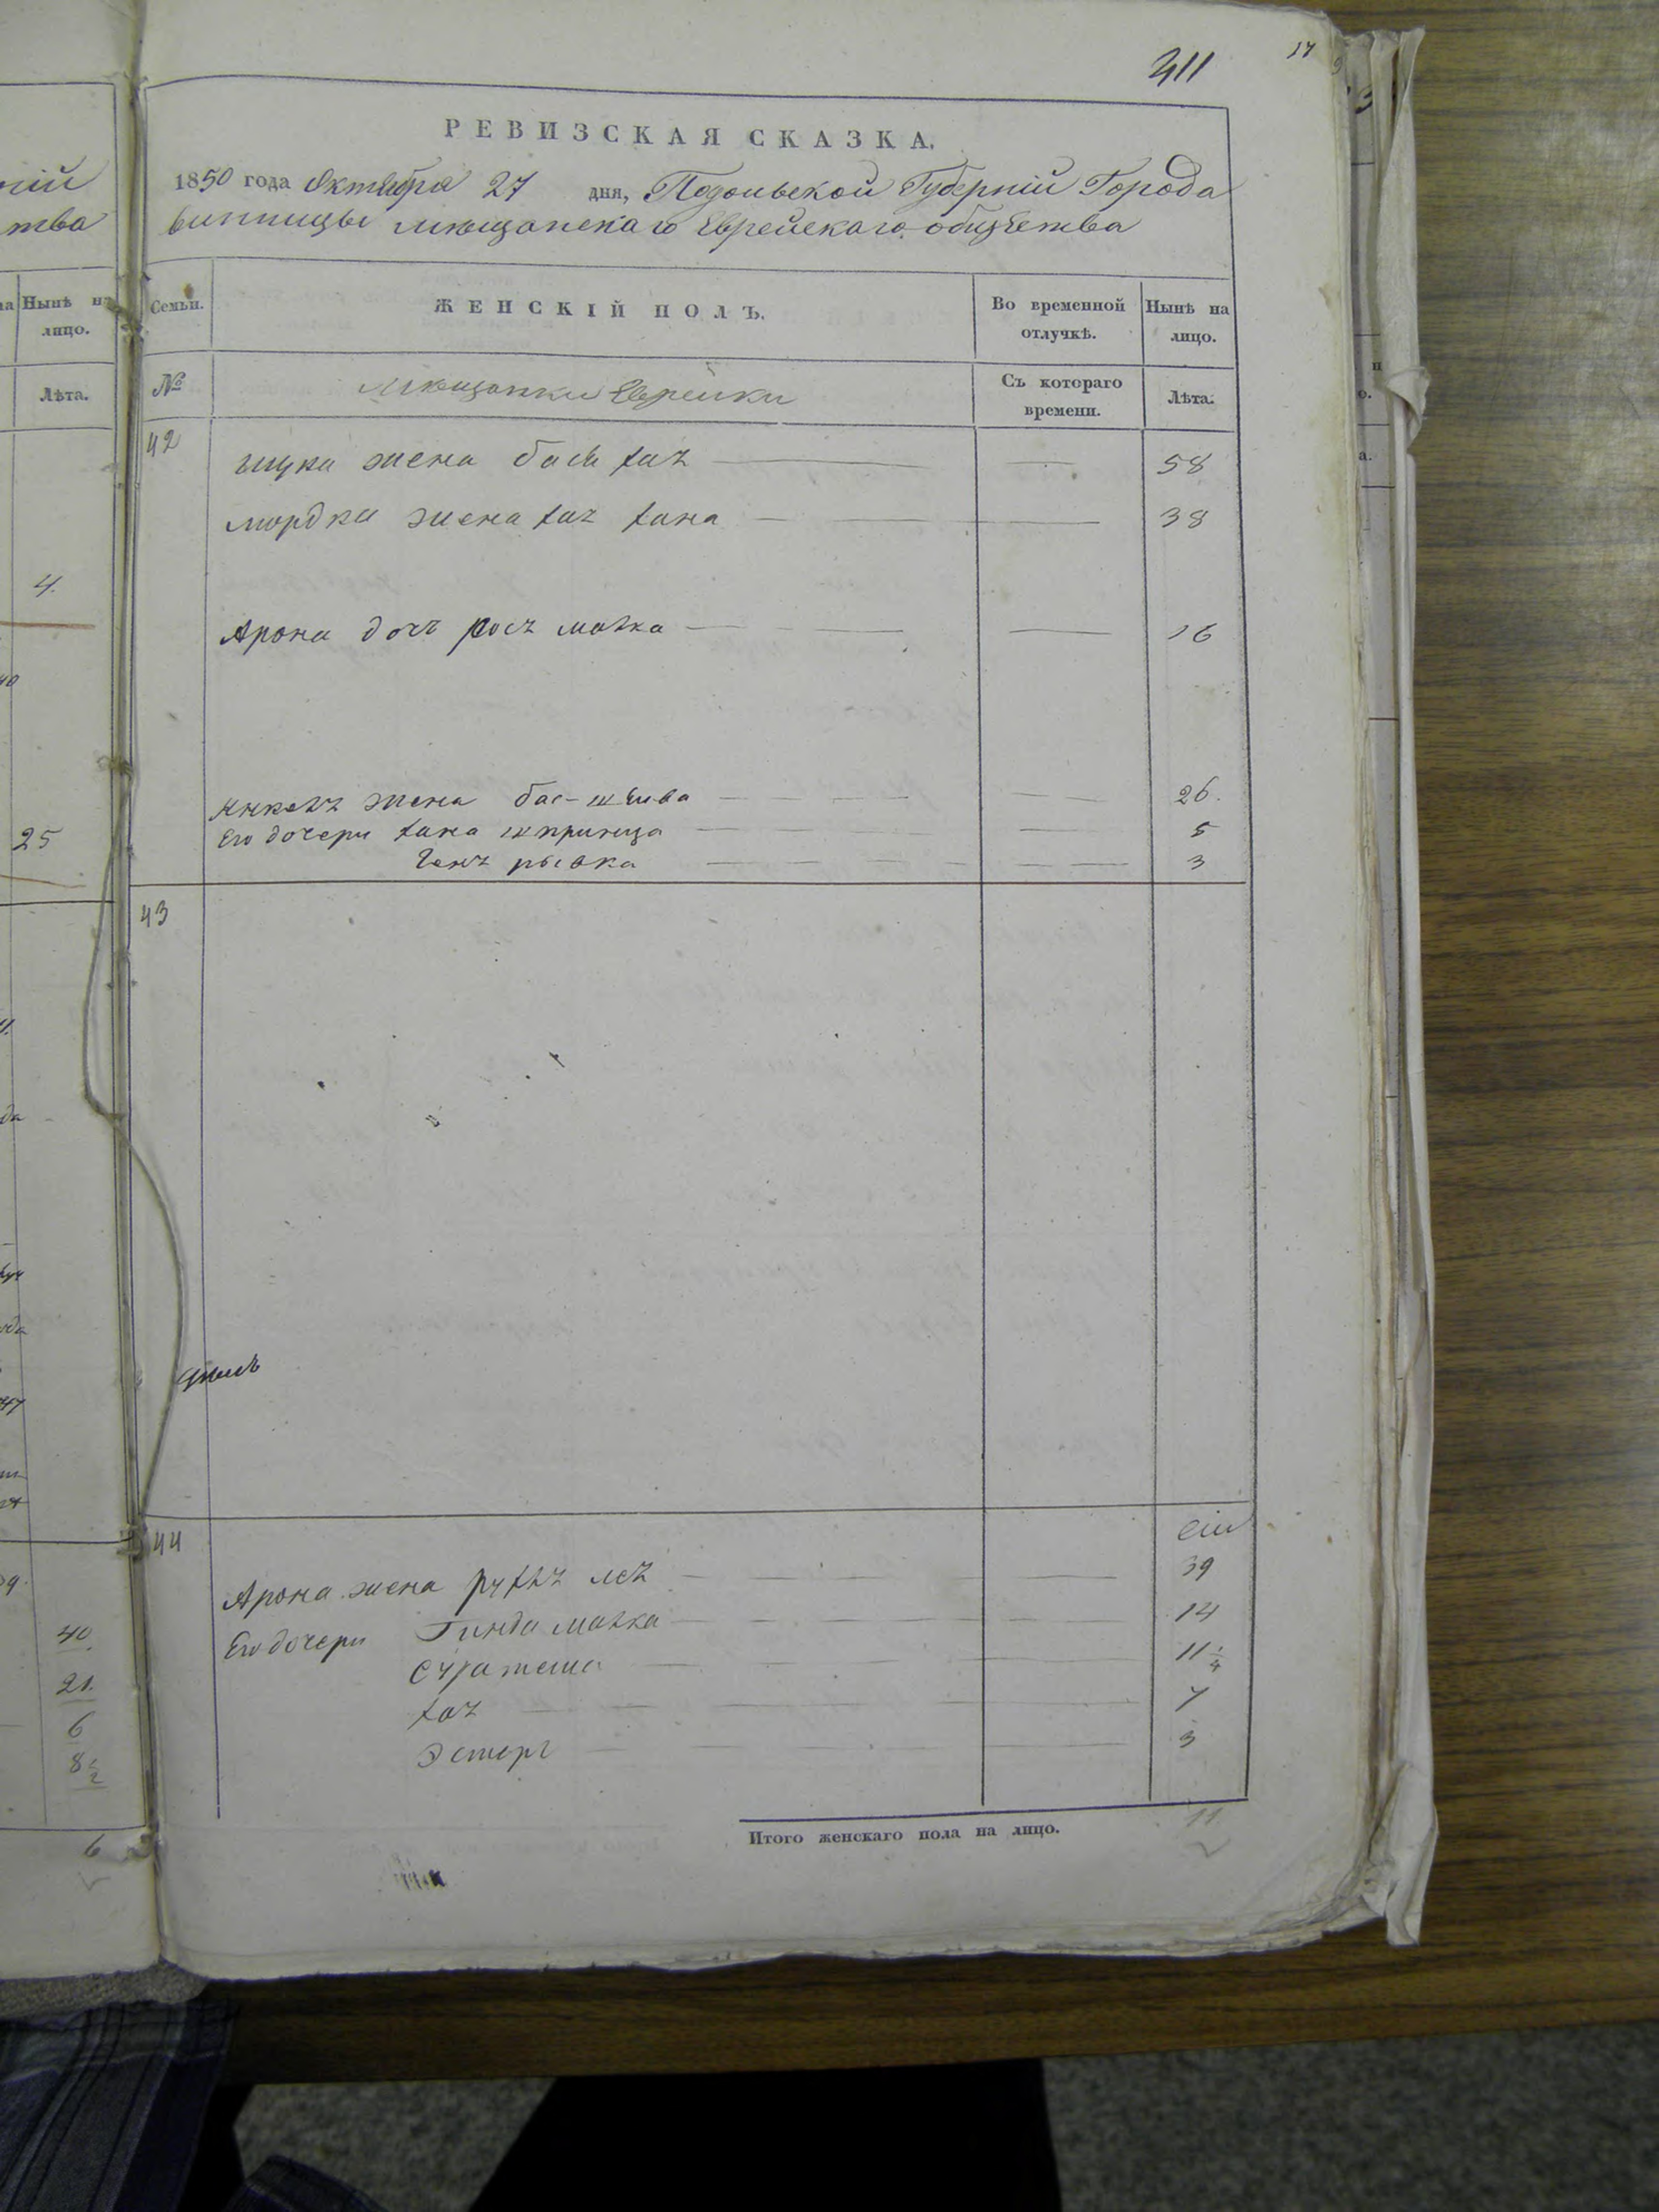 411
17
РЕВИЗСКАЯ СКАЗКА.
1850 года Октября 27 дня, Подольской Губерніи Города
винницы мѣщанскаго Еврейскаго общества
Семьи.
ЖЕНСКІЙ ПОЛЪ.
Во временной отлучкѣ.
Нынѣ на лицо.
№
Мѣщанки Еврейки
Съ котораго времени.
Лѣта.
42
жена бася хая 58
мордка жена хая хана 38
Арона дочь малка 16
Янкеля жена бас-шева 26.
Его дочери хана шпринца 5
рывка 3
43
44
Арона жена рухля лея 39
Его дочери Гинда малка 14
11 1/4
хая 7
Эстеръ 3
Итого женскаго пола на лицо. 11
ній
тва
Нынѣ на лицо.
Лѣта.
4.
25
40
21.
6
8 1/2
6